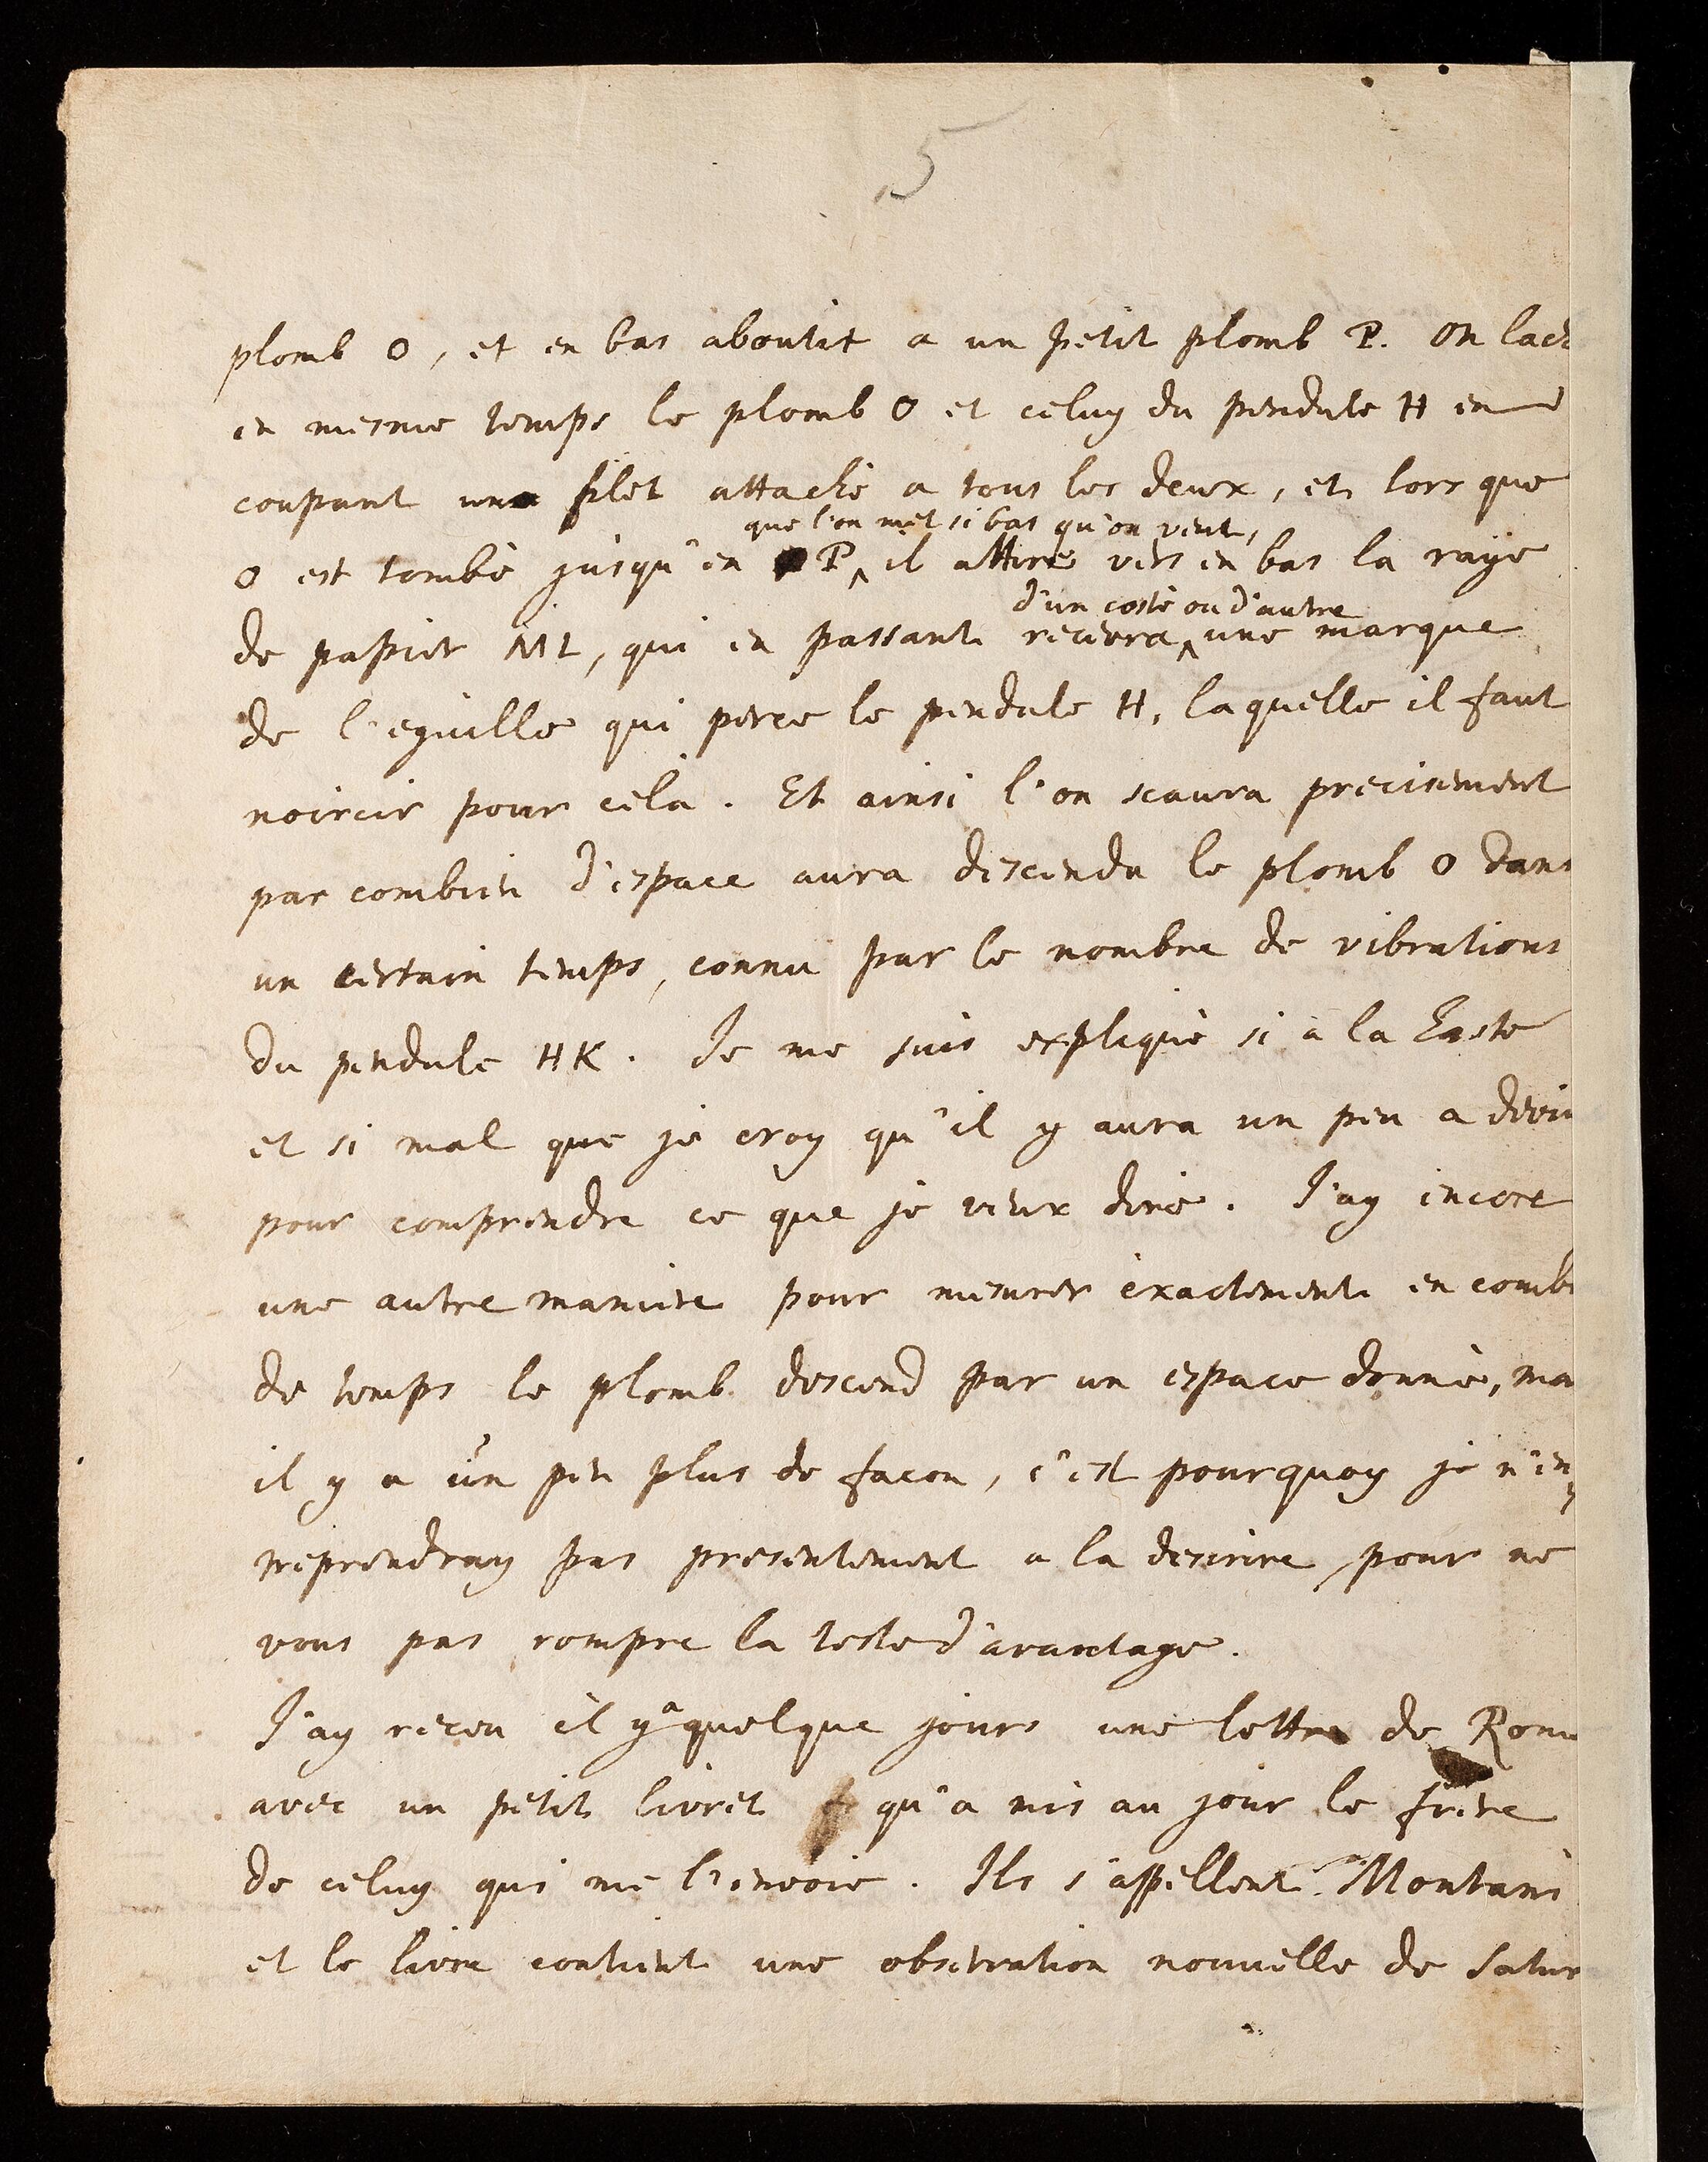 5
plomb O, et en bas aboutit a un petit plomb P. On lach
en mesme temps le plomb O et celuy du pendule H en
coupant un filet attachè a tous les deux, et lors que
que l'on met si bas qu'on veut,
O est tombè jusqu'en P ‸ il attire vers en bas la raye
d'un costè ou d'autre
de papier ML, qui en passant recevra ‸ une marque
de l'eguille qui perce le pendule H, laquelle il faut
noircir pour cela. Et ainsi l'on scaura precisement
par combien d'espace aura descendu le plomb O dans
un certain temps, connu par le nombre de vibrations
du pendule HK. Je me suis expliquè si à la haste
et si mal que je croy qu'il y aura un peu a devin
pour comprendre ce que je veux dire. J'ay encore
une autre maniere pour mesurer exactement en combi
de temps le plomb descend par un espace donnè, ma
il y a un peu plus de facon, c'est pourquoy je n'en
treprendray pas presentement a la descrire, pour ne
vous pas rompre la teste d'avantage.
J'ay receu il y a quelque jours une lettre de Rome
avec un petit livret qu'a mis au jour le frere
de celuy qui me l'envoie. Ils s'appellent Montani
et le livre contient une observation nouvelle de Satur